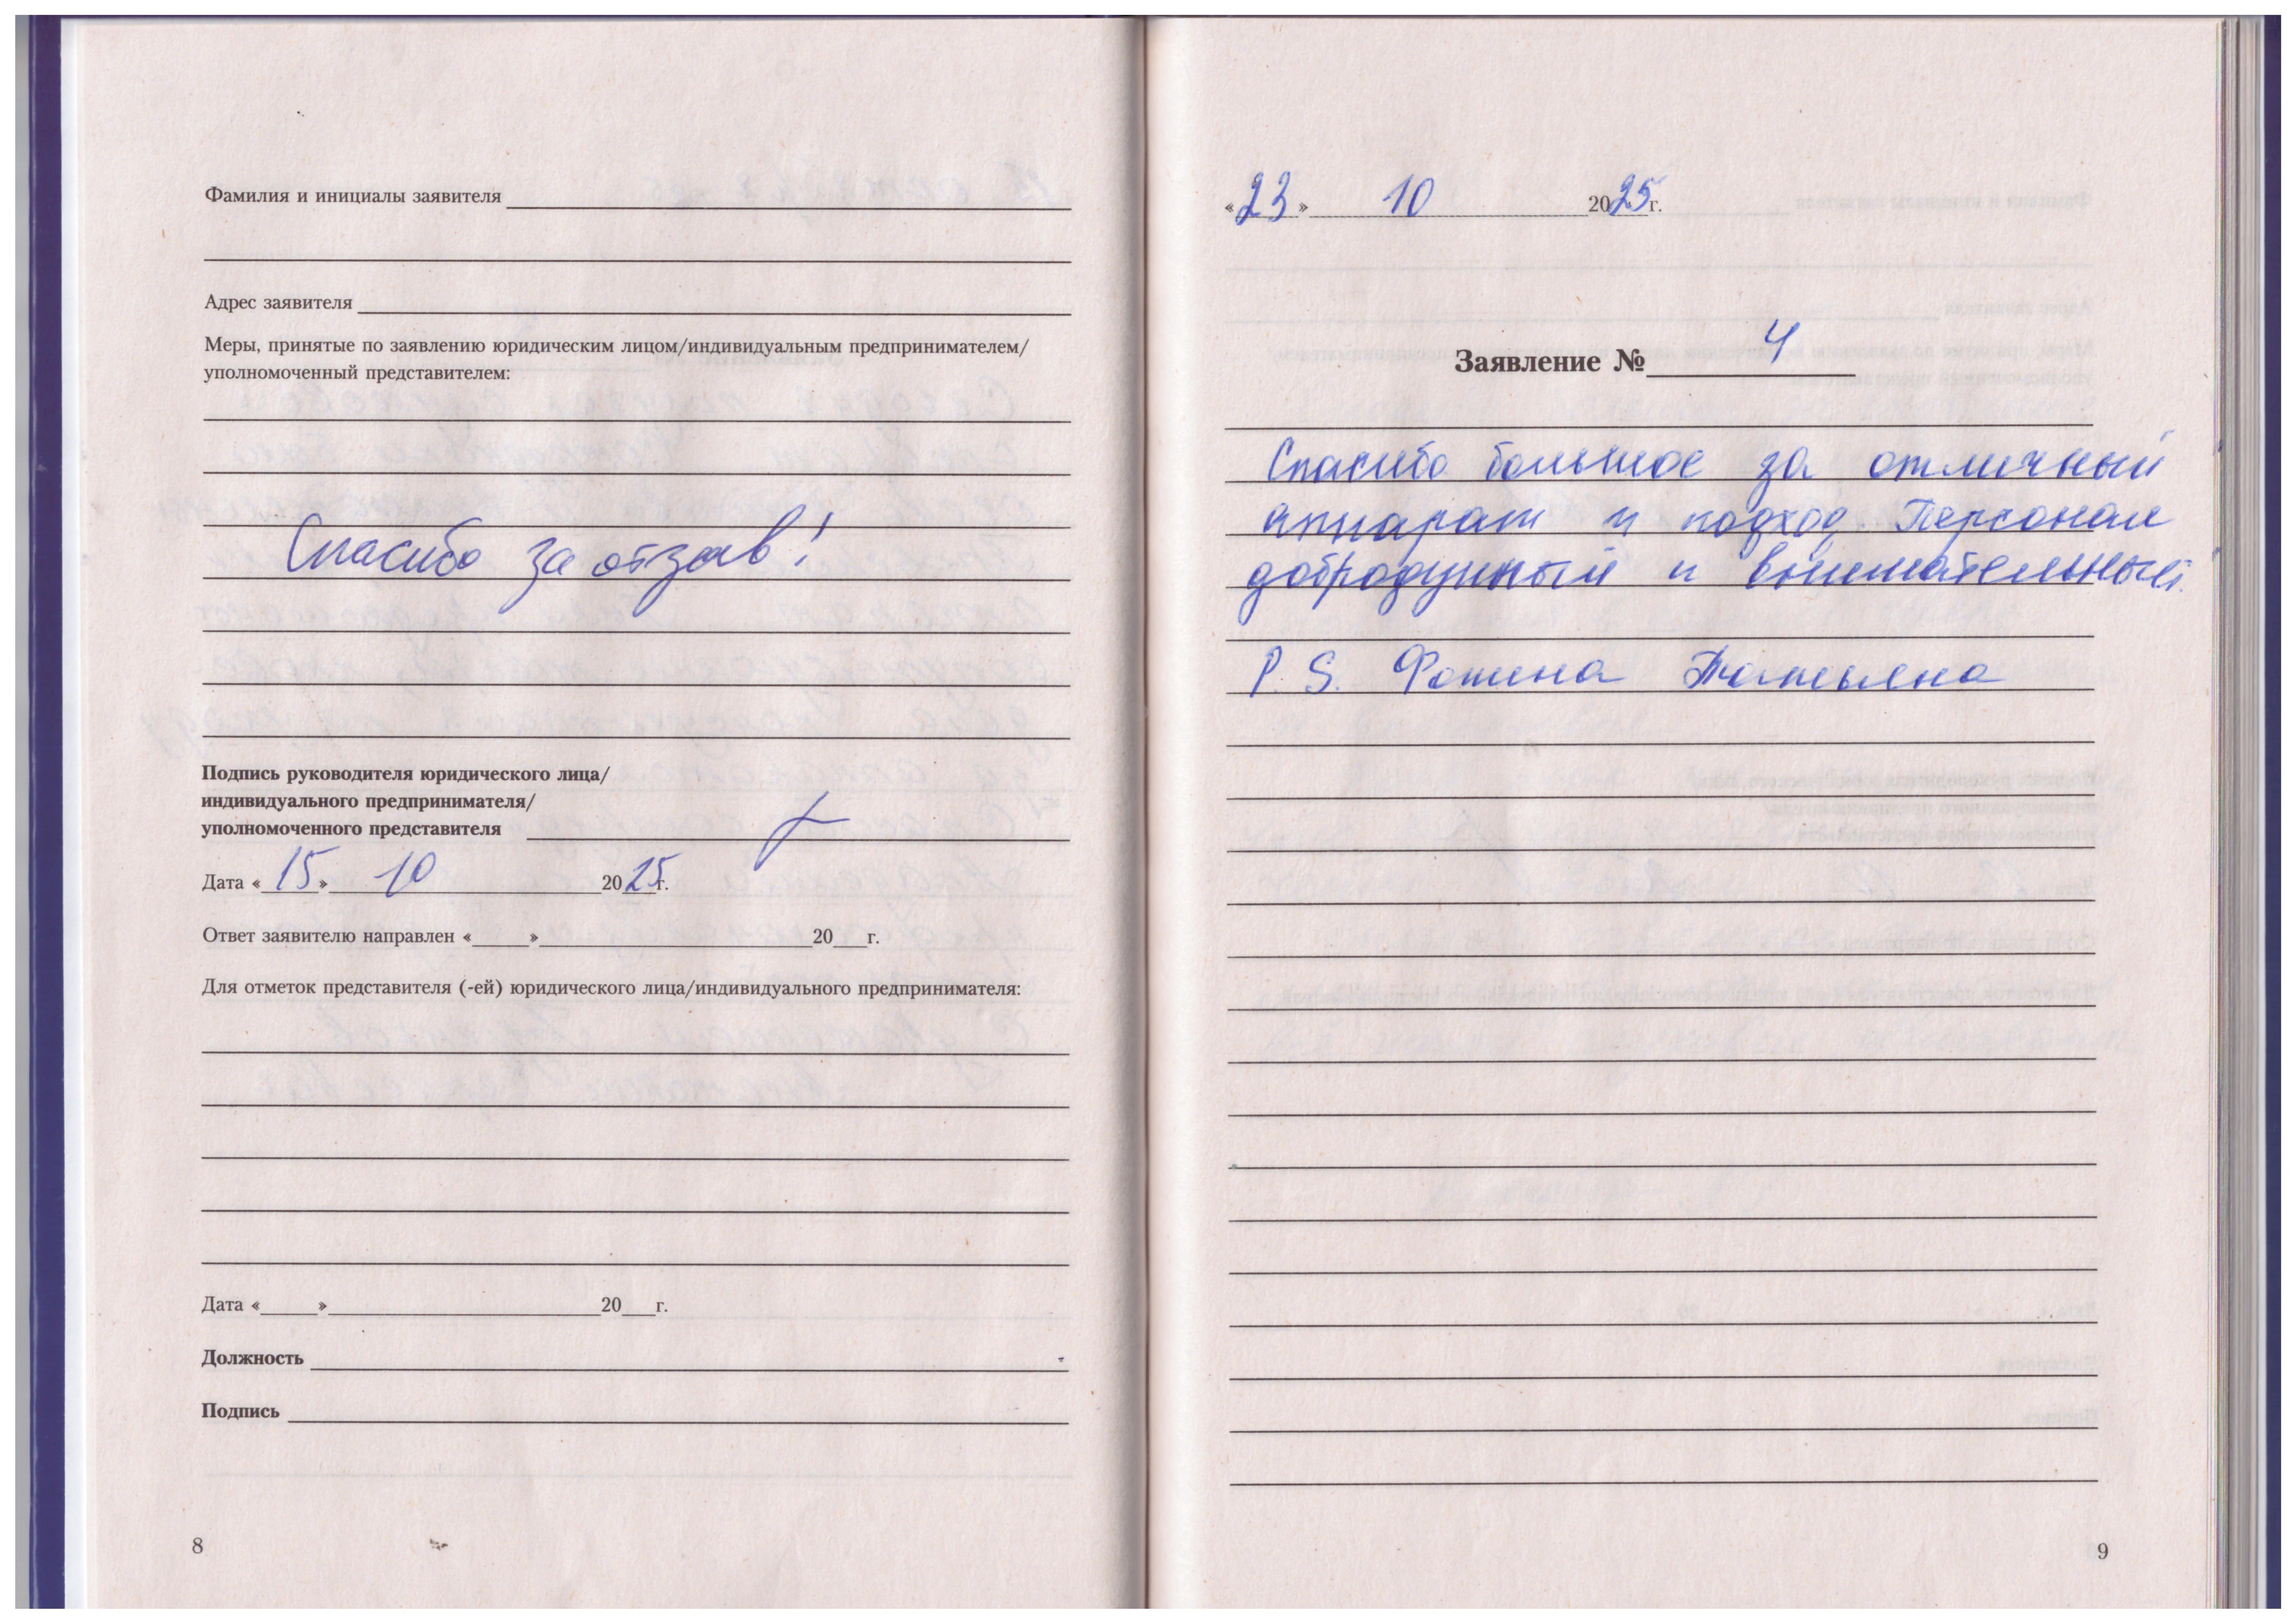 Фамилия и инициалы заявителя
Адрес заявителя
Меры, принятые по заявлению юридическим лицом/индивидуальным предпринимателем/
уполномоченный представителем:
Спасибо за отзыв!
Подпись руководителя юридического лица/
индивидуального предпринимателя/
уполномоченного представителя
Дата «15» 10 2025г.
Ответ заявителю направлен «_____»_____20___г.
Для отметок представителя (-ей) юридического лица/индивидуального предпринимателя:
Дата «_____»_____20___г.
Должность
Подпись
8
«23» 10 2025г.
Заявление № 4
Спасибо большое за отличный
аппарат и подход. Персонал
добродушный и внимательный.
P. S. Фомина Татьяна
9